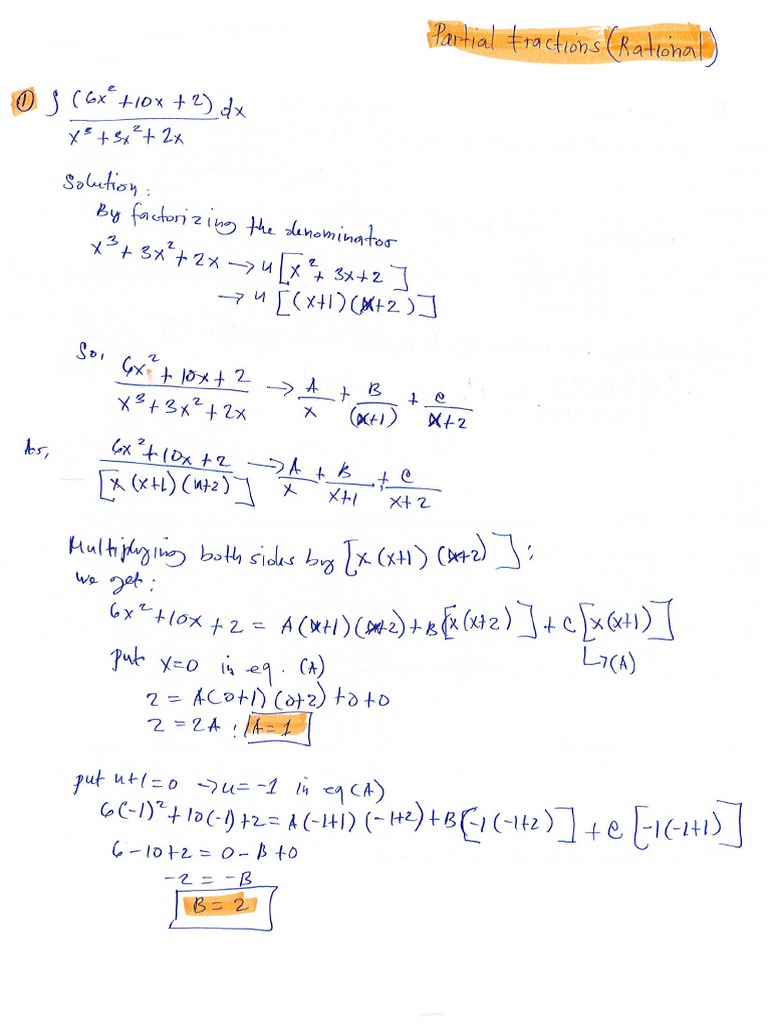 Partial Fractions (Rational)
① ∫ (6x² + 10x + 2) dx
x³ + 3x² + 2x
Solution:
By factorizing the denominator
x³ + 3x² + 2x → u [x² + 3x + 2]
→ u [(x+1)(x+2)]
So, 6x² + 10x + 2 → A + B + C
x³ + 3x² + 2x x (x+1) x+2
As, 6x² + 10x + 2 → A + B + C
[x (x+1) (u+2)] x x+1 x+2
Multiplying both sides by [x (x+1) (x+2)];
we get:
6x² + 10x + 2 = A(x+1)(x+2) + B[x(x+2)] + C[x(x+1)]
↳(A)
put x=0 in eq. (A)
2 = A(0+1) (0+2) + 0 + 0
2 = 2A; A = 1
put u+1=0 → u = -1 in eq(A)
6(-1)² + 10(-1) + 2 = A(-1+1) (-1+2) + B[-1(-1+2)] + C[-1(-1+1)]
6 - 10 + 2 = 0 - B + 0
-2 = -B
B = 2